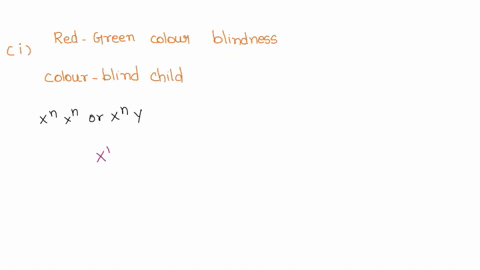 (i) Red-Green colour blindness
colour-blind child
xⁿ xⁿ or xⁿ y
x'